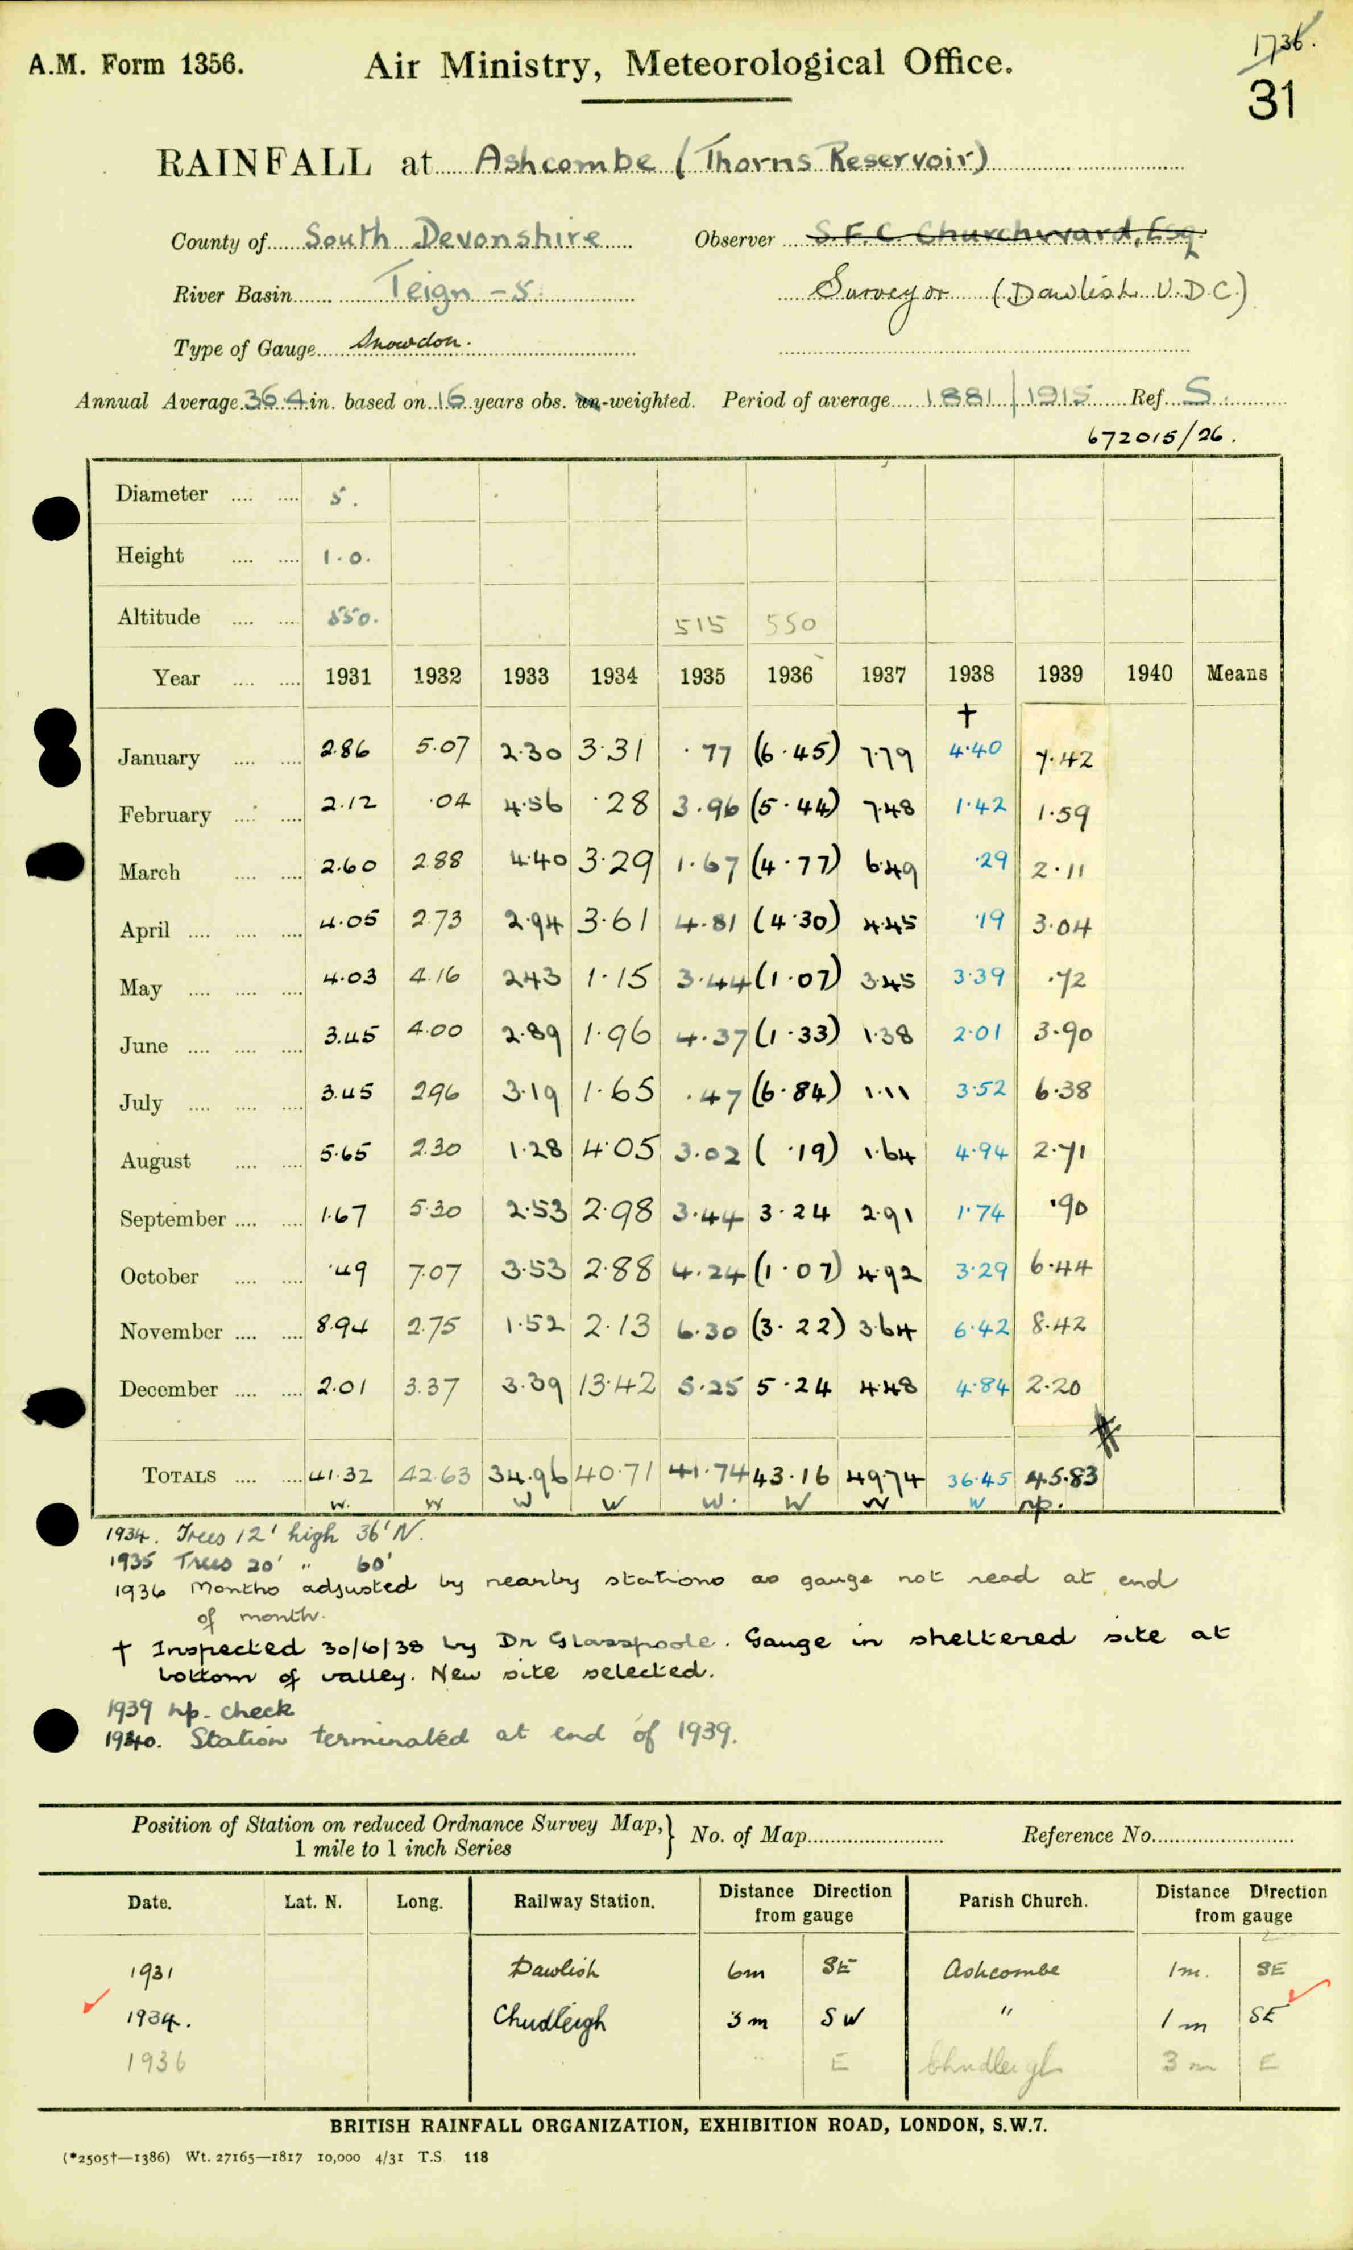 1736.
A.M. Form 1356. Air Ministry, Meteorological Office.
31
RAINFALL at Ashcombe (Thorns Reservoir)
County of South Devonshire Observer S.F.C. Churchward, Esq.
River Basin Teign - S. Surveyor (Dawlish U.D.C.)
Type of Gauge Snowdon.
Annual Average 36.4 in. based on 16 years obs. un-weighted. Period of average 1881 | 1915 Ref. S.
672015/26.
Diameter .... .... 5.
Height .... .... 1.0.
Altitude .... .... 550. 515 550
Year .... .... 1931 1932 1933 1934 1935 1936 1937 1938 1939 1940 Means
†
January .... .... 2.86 5.07 2.30 3.31 .77 (6.45) 7.79 4.40 7.42
February .... .... 2.12 .04 4.56 .28 3.96 (5.44) 7.48 1.42 1.59
March .... .... 2.60 2.88 4.40 3.29 1.67 (4.77) 6.49 .29 2.11
April .... .... .... 4.05 2.73 2.94 3.61 4.81 (4.30) 4.45 .19 3.04
May .... .... .... 4.03 4.16 2.43 1.15 3.44 (1.07) 3.45 3.39 .72
June .... .... .... 3.45 4.00 2.89 1.96 4.37 (1.33) 1.38 2.01 3.90
July .... .... .... 3.45 2.96 3.19 1.65 .47 (6.84) 1.11 3.52 6.38
August .... .... 5.65 2.30 1.28 4.05 3.02 ( .19) 1.64 4.94 2.71
September .... .... 1.67 5.30 2.53 2.98 3.44 3.24 2.91 1.74 .90
October .... .... .49 7.07 3.53 2.88 4.24 (1.07) 4.92 3.29 6.44
November .... .... 8.94 2.75 1.52 2.13 6.30 (3.22) 3.64 6.42 8.42
December .... .... 2.01 3.37 3.39 13.42 5.25 5.24 4.48 4.84 2.20
TOTALS .... .... 41.32 42.63 34.96 40.71 41.74 43.16 49.74 36.45 45.83
w. w w w w. w w w np.
1934. Trees 12' high 36' N.
1935 Trees 20' " 60'
1936 Months adjusted by nearby stations as gauge not read at end
of month.
† Inspected 30/6/38 by Dr Glasspoole. Gauge in sheltered site at
bottom of valley. New site selected.
1939 np. check
1940. Station terminated at end of 1939.
Position of Station on reduced Ordnance Survey Map, } No. of Map Reference No.
1 mile to 1 inch Series
Date. Lat. N. Long. Railway Station. Distance Direction from gauge Parish Church. Distance Direction from gauge
1931 Dawlish 6m SE Ashcombe 1m. SE
1934. Chudleigh 3m SW " 1m SE
1936 " E Chudleigh 3m E
BRITISH RAINFALL ORGANIZATION, EXHIBITION ROAD, LONDON, S.W.7.
(*2505†—1386) Wt. 27165—1817 10,000 4/31 T.S. 118